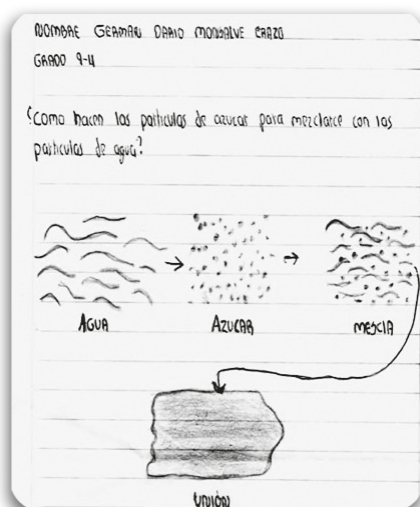 NOMBRE GERMAN DARIO MONSALVE ERAZO
GRADO 9-4
¿Como hacen las particulas de azucar para mezclarce con las
particulas de agua?
AGUA
AZUCAR
MEZCLA
UNIÓN